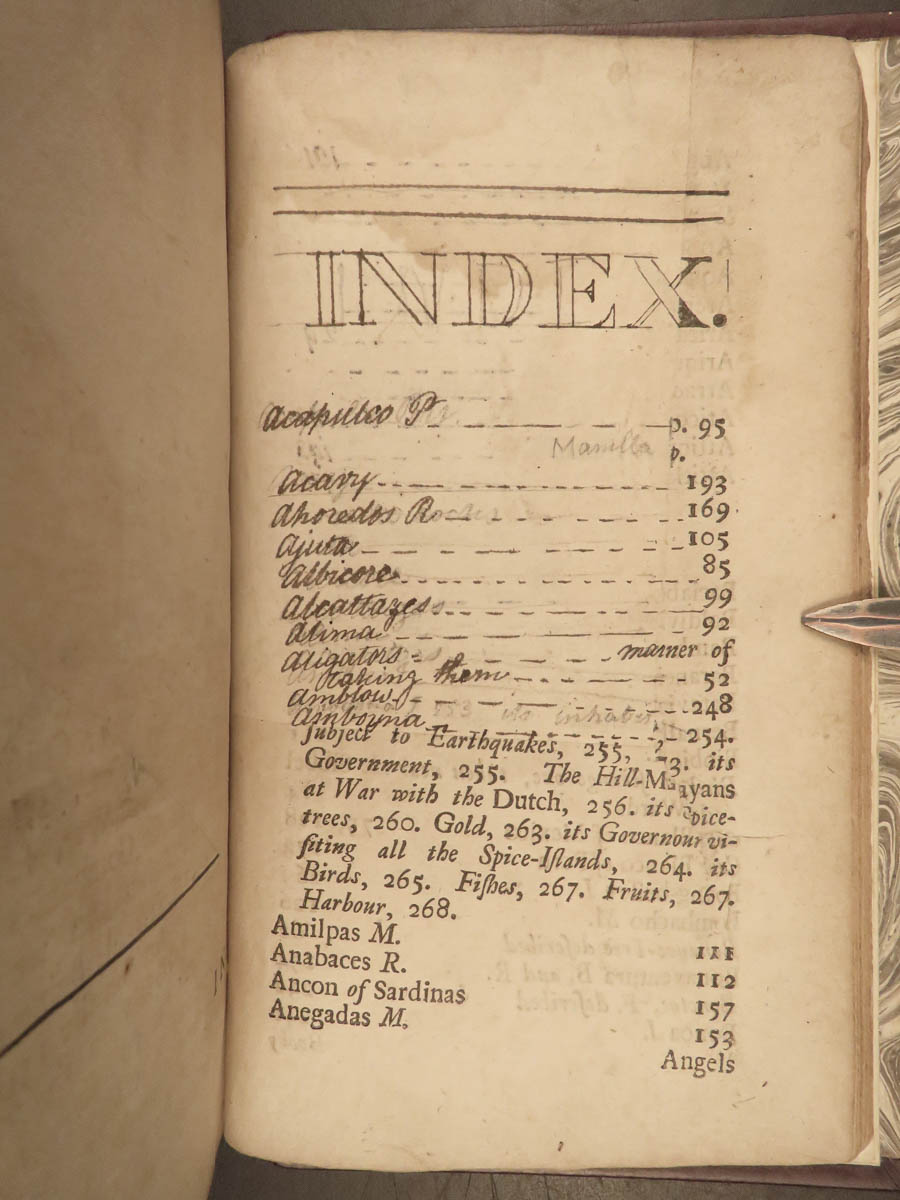 INDEX.
Acapulco P. p. 95
Manilla p.
Acavy 193
Ahoredos R 169
Ajuta 105
Albicore 85
Alcattazes 99
Alima 92
Aligators manner of
taking them 52
Amblow 248
Amboyna 254.
ſubject to Earthquakes, 255, its
Government, 255. The Hill-Malayans
at War with the Dutch, 256. its Spice-
trees, 260. Gold, 263. its Governour vi-
ſiting all the Spice-Iſlands, 264. its
Birds, 265. Fiſhes, 267. Fruits, 267.
Harbour, 268.
Amilpas M. 111
Anabaces R. 112
Ancon of Sardinas 157
Anegadas M. 153
Angels